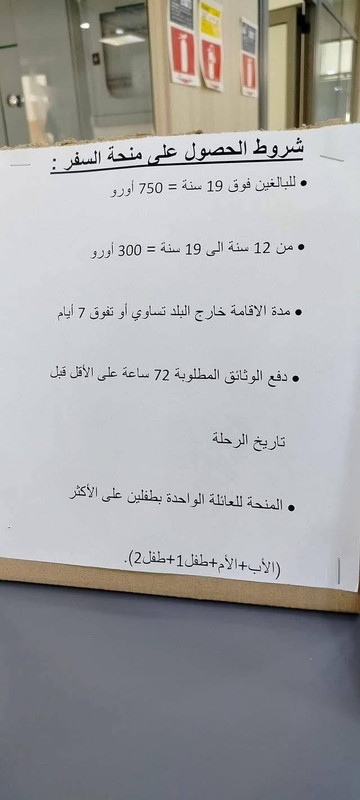 شروط الحصول على منحة السفر :
• للبالغين فوق 19 سنة = 750 أورو
• من 12 سنة الى 19 سنة = 300 أورو
• مدة الاقامة خارج البلد تساوي أو تفوق 7 أيام
• دفع الوثائق المطلوبة 72 ساعة على الأقل قبل
تاريخ الرحلة
• المنحة للعائلة الواحدة بطفلين على الأكثر
(الأب+الأم+طفل1+طفل2).